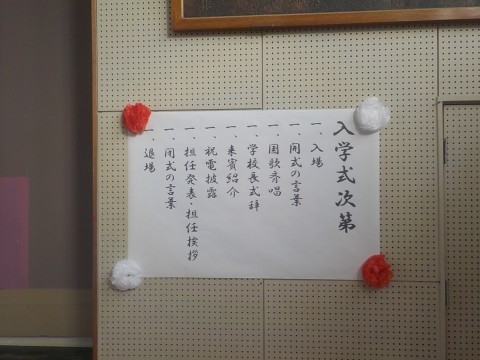 入学式次第
一、入場
一、開式の言葉
一、国歌斉唱
一、学校長式辞
一、来賓紹介
一、祝電披露
一、担任発表・担任挨拶
一、閉式の言葉
一、退場